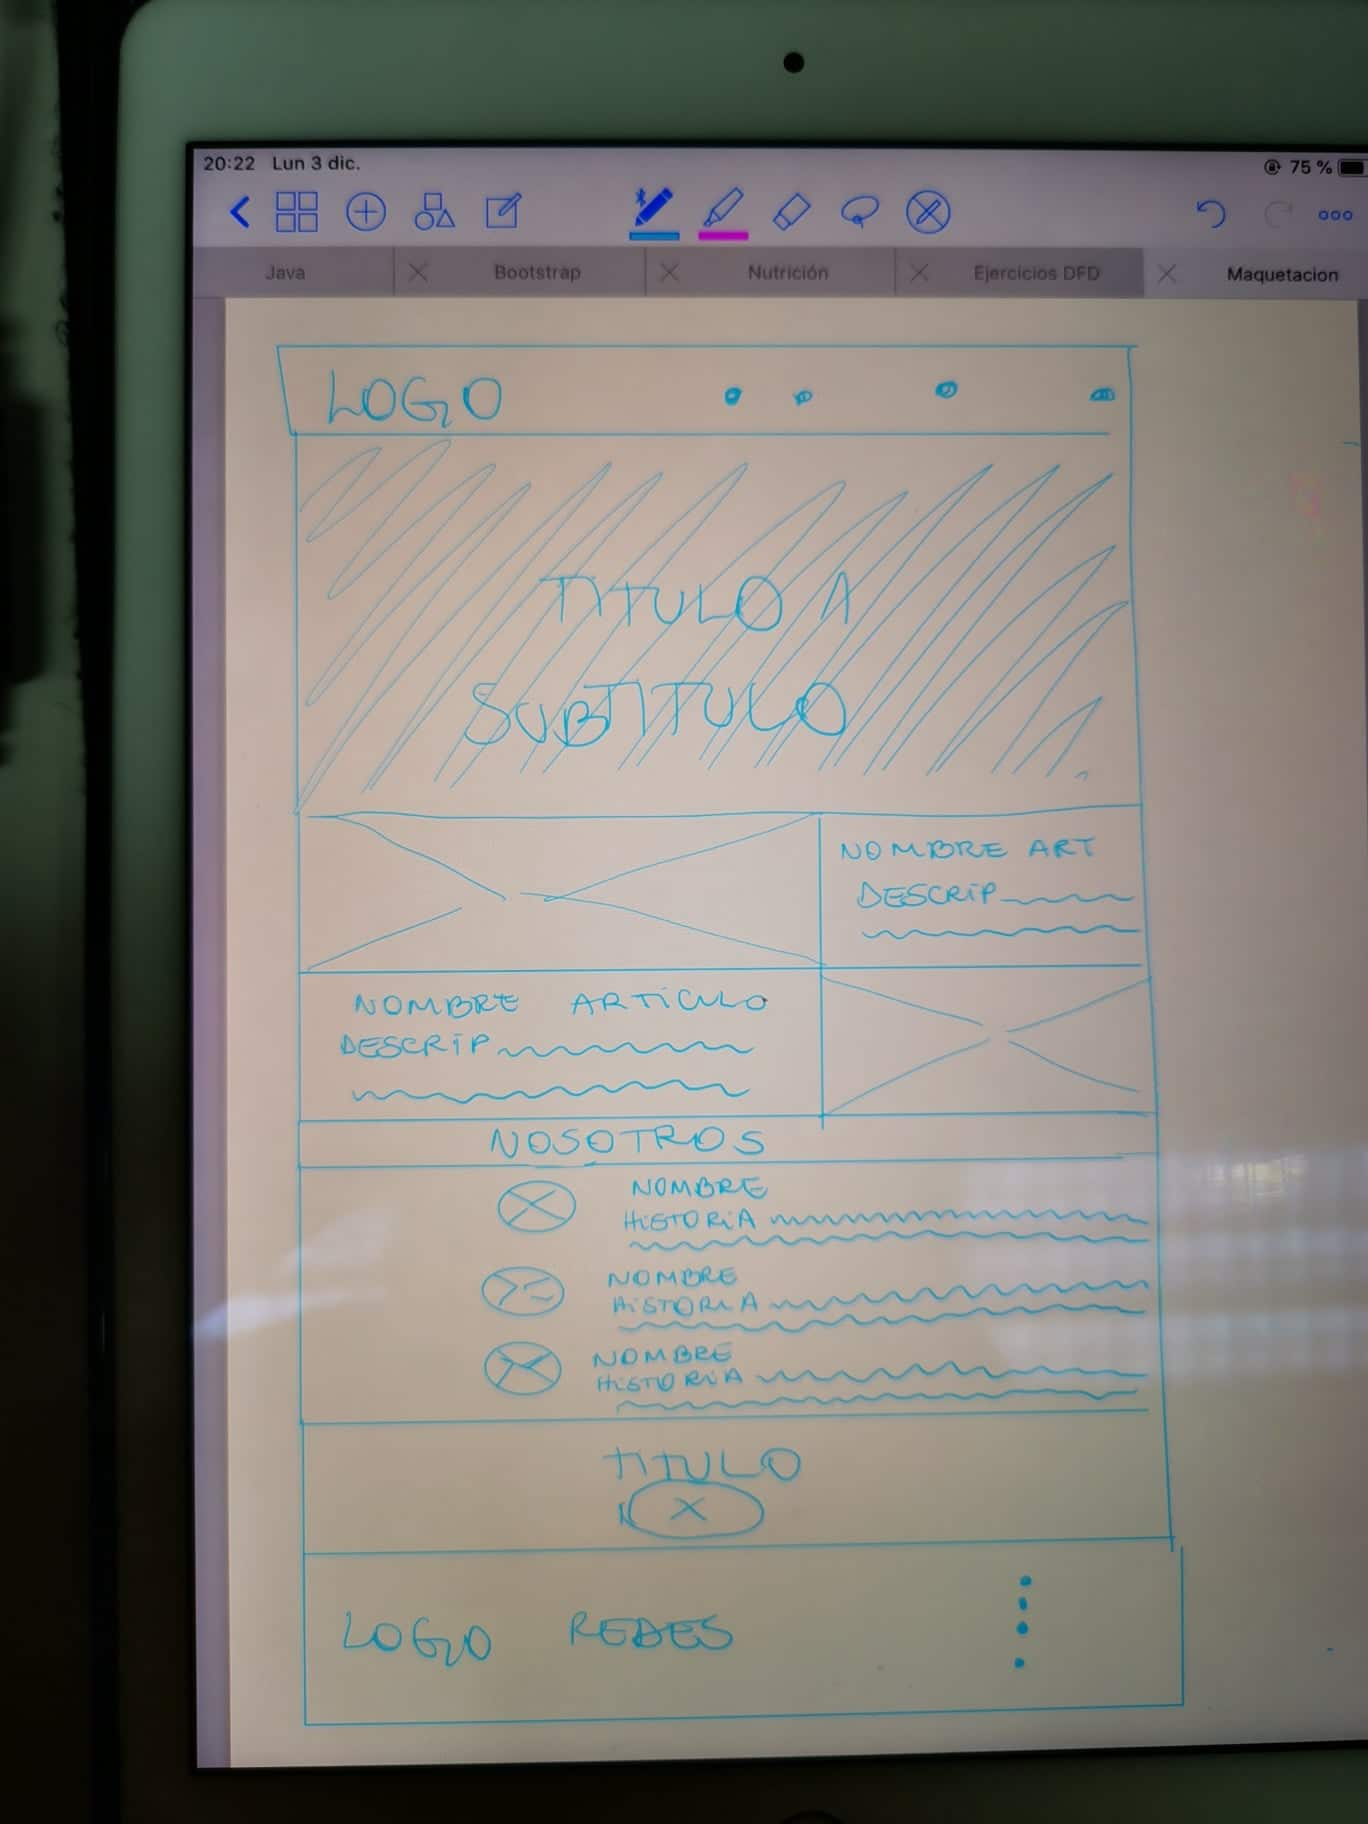 20:22 Lun 3 dic. 75 %
Java Bootstrap Nutrición Ejercicios DFD Maquetacion
LOGO
TITULO A
SUBTITULO
NOMBRE ART
DESCRIP
NOMBRE ARTÍCULO
DESCRIP
NOSOTROS
NOMBRE
HISTORIA
NOMBRE
HISTORIA
NOMBRE
HISTORIA
TITULO
LOGO REDES